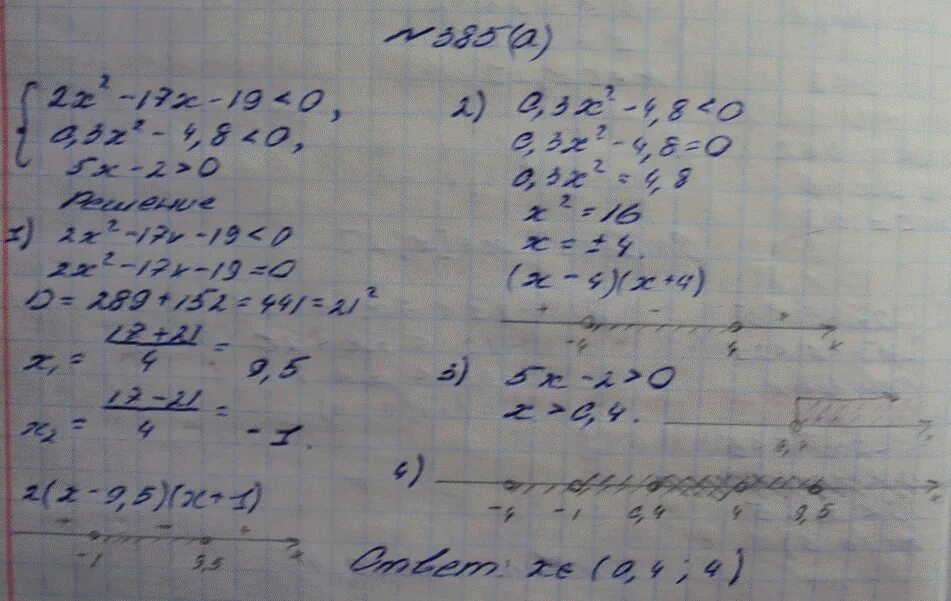 №385(а)
2x² - 17x - 19 < 0,
0,3x² - 4,8 < 0,
5x - 2 > 0
Решение
1) 2x² - 17x - 19 < 0
2x² - 17x - 19 = 0
D = 289 + 152 = 441 = 21²
x₁ = (17 + 21)/4 = 9,5
x₂ = (17 - 21)/4 = -1.
2(x - 9,5)(x + 1)
+ - +
-1 9,5 x
2) 0,3x² - 4,8 < 0
0,3x² - 4,8 = 0
0,3x² = 4,8
x² = 16
x = ±4.
(x - 4)(x + 4)
+ - +
-4 4 x
3) 5x - 2 > 0
x > 0,4.
0,4 x
4)
-4 -1 0,4 4 9,5 x
Ответ: x ∈ (0,4; 4)